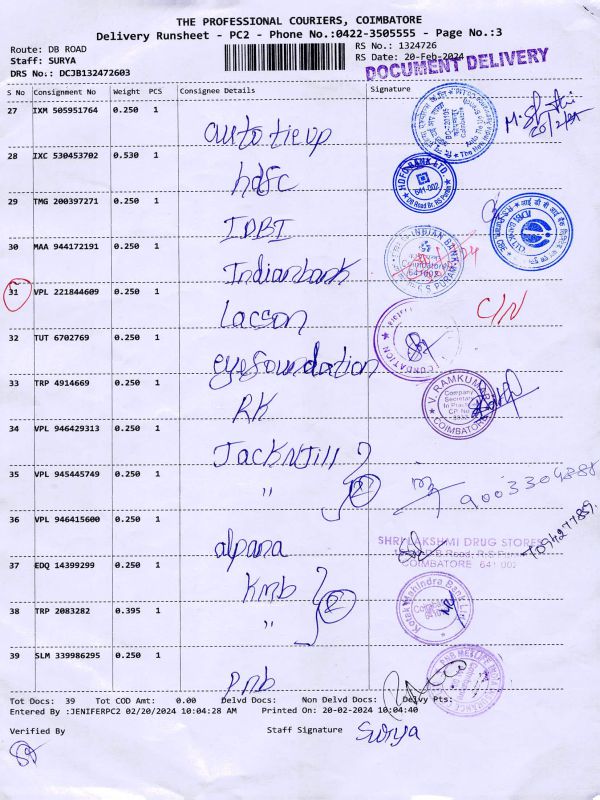 THE PROFESSIONAL COURIERS, COIMBATORE
Delivery Runsheet - PC2 - Phone No.:0422-3505555 - Page No.:3
Route: DB ROAD
RS No.: 1324726
Staff: SURYA
RS Date: 20-Feb-2024
DRS No.: DCJB132472603
DOCUMENT DELIVERY
S No Consignment No Weight PCS Consignee Details Signature
27 IXM 505951764 0.250 1
auto tie up
20/2/24
28 IXC 530453702 0.530 1
hdfc
HDFC BANK LTD.
641-002
29 TMG 200397271 0.250 1
IDBI
30 MAA 944172191 0.250 1
Indianbank
INDIAN BANK
641002
R.S. PURAM
31 VPL 221844609 0.250 1
Lacson
C/N
32 TUT 6702769 0.250 1
eyefoundation
33 TRP 4914669 0.250 1
RK
V. RAMKUMAR
Company
Secretary
COIMBATORE
34 VPL 946429313 0.250 1
JackNJill
35 VPL 945445749 0.250 1
"
2
9003304888
36 VPL 946415600 0.250 1
alpana
SHRI LAKSHMI DRUG STORES
COIMBATORE 641 002
37 EDQ 14399299 0.250 1
kmb
Kotak Mahindra Bank Ltd
38 TRP 2083282 0.395 1
"
2
39 SLM 339986295 0.250 1
pnb
PNB METLIFE INDIA
Tot Docs: 39 Tot COD Amt: 0.00 Delvd Docs: Non Delvd Docs: Delvy Pts:
Entered By :JENIFERPC2 02/20/2024 10:04:28 AM Printed On: 20-02-2024 10:04:40
Verified By
Staff Signature
Surya